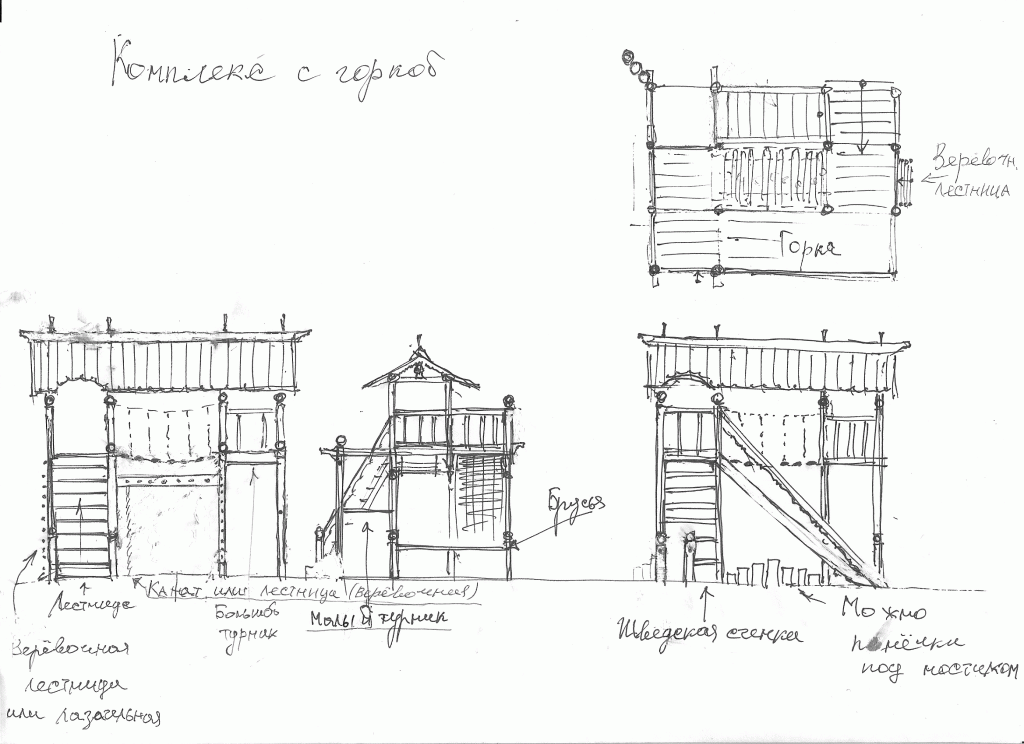 Комплекс с горкой
Верёвочн.
лестница
Горка
Брусья
Лестница
Канат или лестница (верёвочная)
Большой
турник
Малый турник
Верёвочная
лестница
или лазательная
Шведская стенка
Можно
пенёчки
под мостиком